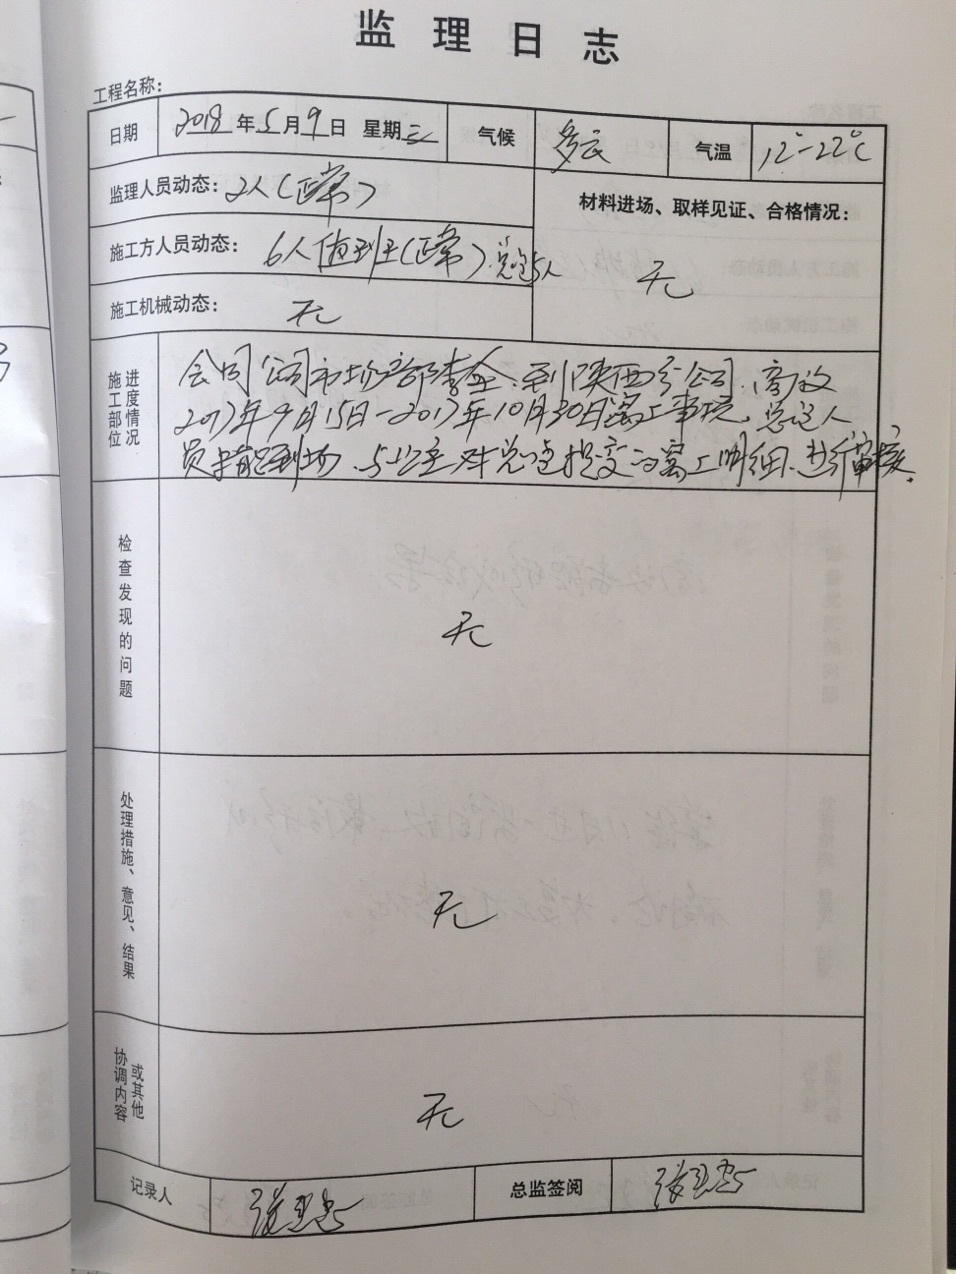 监理日志
工程名称：
日期 2018年5月9日 星期三 气候 多云 气温 12°-22℃
监理人员动态：2人(正常)
材料进场、取样见证、合格情况：
无
施工方人员动态：6人值班(正常)总包5人
施工机械动态：无
施工部位进度情况
会同公司市场部李全、到陕西分公司、商议
2017年9月15日-2017年10月30日窝工事项、总包人
员 到场、与业主对总包提交的窝工明细、进行审核.
检查发现的问题
无
处理措施、意见、结果
无
协调内容或其他
无
记录人 总监签阅